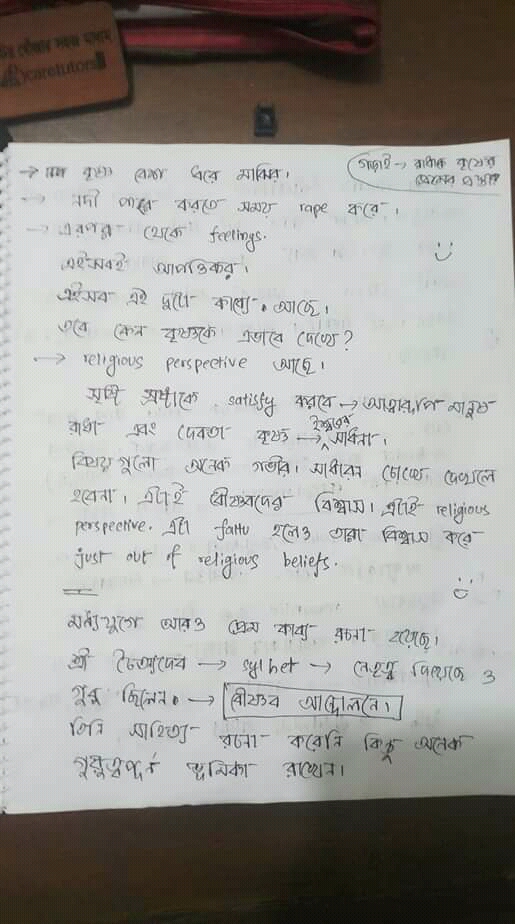 caretutors
→ কৃষ্ণ বেশ ধরে মাঝির।
বড়াই → রাধাকে কৃষ্ণের প্রেমের প্রস্তাব
→ নদী পার করতে সময় rape করে।
→ এরপর থেকে feelings.
এইসবই আপত্তিকর।
এইসব এই দুটো কাব্যে আছে।
তবে কেন কৃষ্ণকে এভাবে দেখে?
→ religious perspective আছে।
satisfy করবে → আত্মারূপি মানুষ
রাধা এবং দেবতা কৃষ্ণ → ঈশ্বরের সাধনা।
বিষয়গুলো অনেক গভীর। সাধারন চোখে দেখলে
হবেনা। এটাই বৈষ্ণবদের বিশ্বাস। এটাই religious
perspective. এটা faltu হলেও তারা বিশ্বাস করে
just out of religious beliefs.
মধ্যযুগে আরও প্রেম কাব্য রচনা হয়েছে।
শ্রী চৈতন্যদেব → sylhet → নেতৃত্ব দিয়েছে ও
গুরু ছিলেন। → বৈষ্ণব আন্দোলনে।
তিনি সাহিত্য রচনা করেনি কিন্তু অনেক
গুরুত্বপূর্ন ভূমিকা রাখেন।